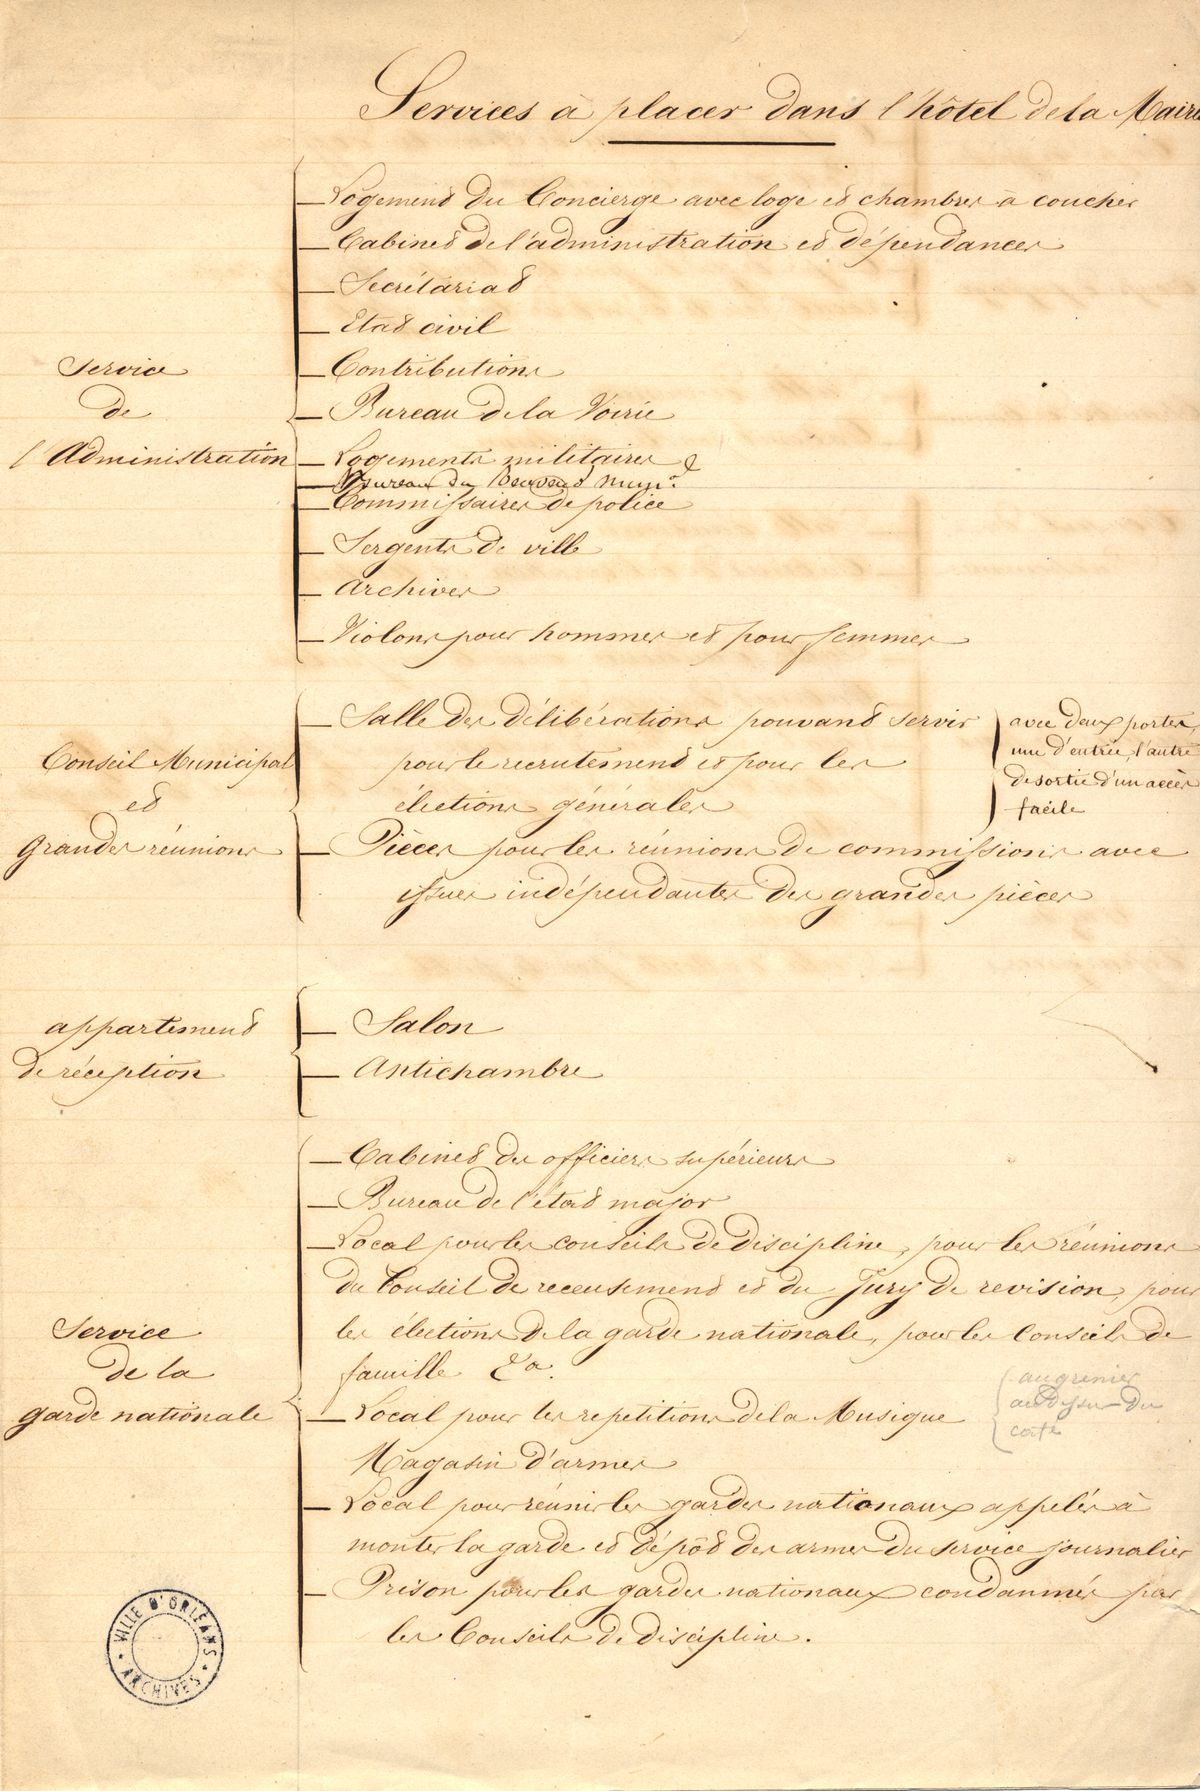 Services à placer dans l'hôtel de la Mairie
Service
de
l'Administration
Logement du Concierge avec loge et chambres à coucher
Cabinet de l'administration et dépendances
Secrétariat
Etat civil
Contributions
Bureau de la Voirie
Logements militaires &
Bureau du mun.al
Commissaires de police
Sergents de ville
Archives
Violons pour hommes et pour femmes
Conseil Municipal
et
grandes réunions
Salle des délibérations pouvant servir
pour le recrutement et pour les
élections générales
avec deux portes,
une d'entrée, l'autre
de sortie d'un accès
facile
Pièces pour les réunions de commissions avec
issues indépendantes des grandes pièces
appartement
de réception
Salon
Antichambre
Service
de la
garde nationale
Cabinet des officiers supérieurs
Bureau de l'état major
Local pour les conseils de discipline, pour les réunions
du Conseil de recensement et du Jury de revision, pour
les élections de la garde nationale, pour les Conseils de
famille &a.
Local pour les repetitions de la Musique
au grenier
au dessus du
café
Magasin d'armes
Local pour réunir les gardes nationaux appelés à
monter la garde et dépôt des armes du service journalier
Prison pour les gardes nationaux condamnés par
les Conseils de discipline.
VILLE D'ORLÉANS
ARCHIVES